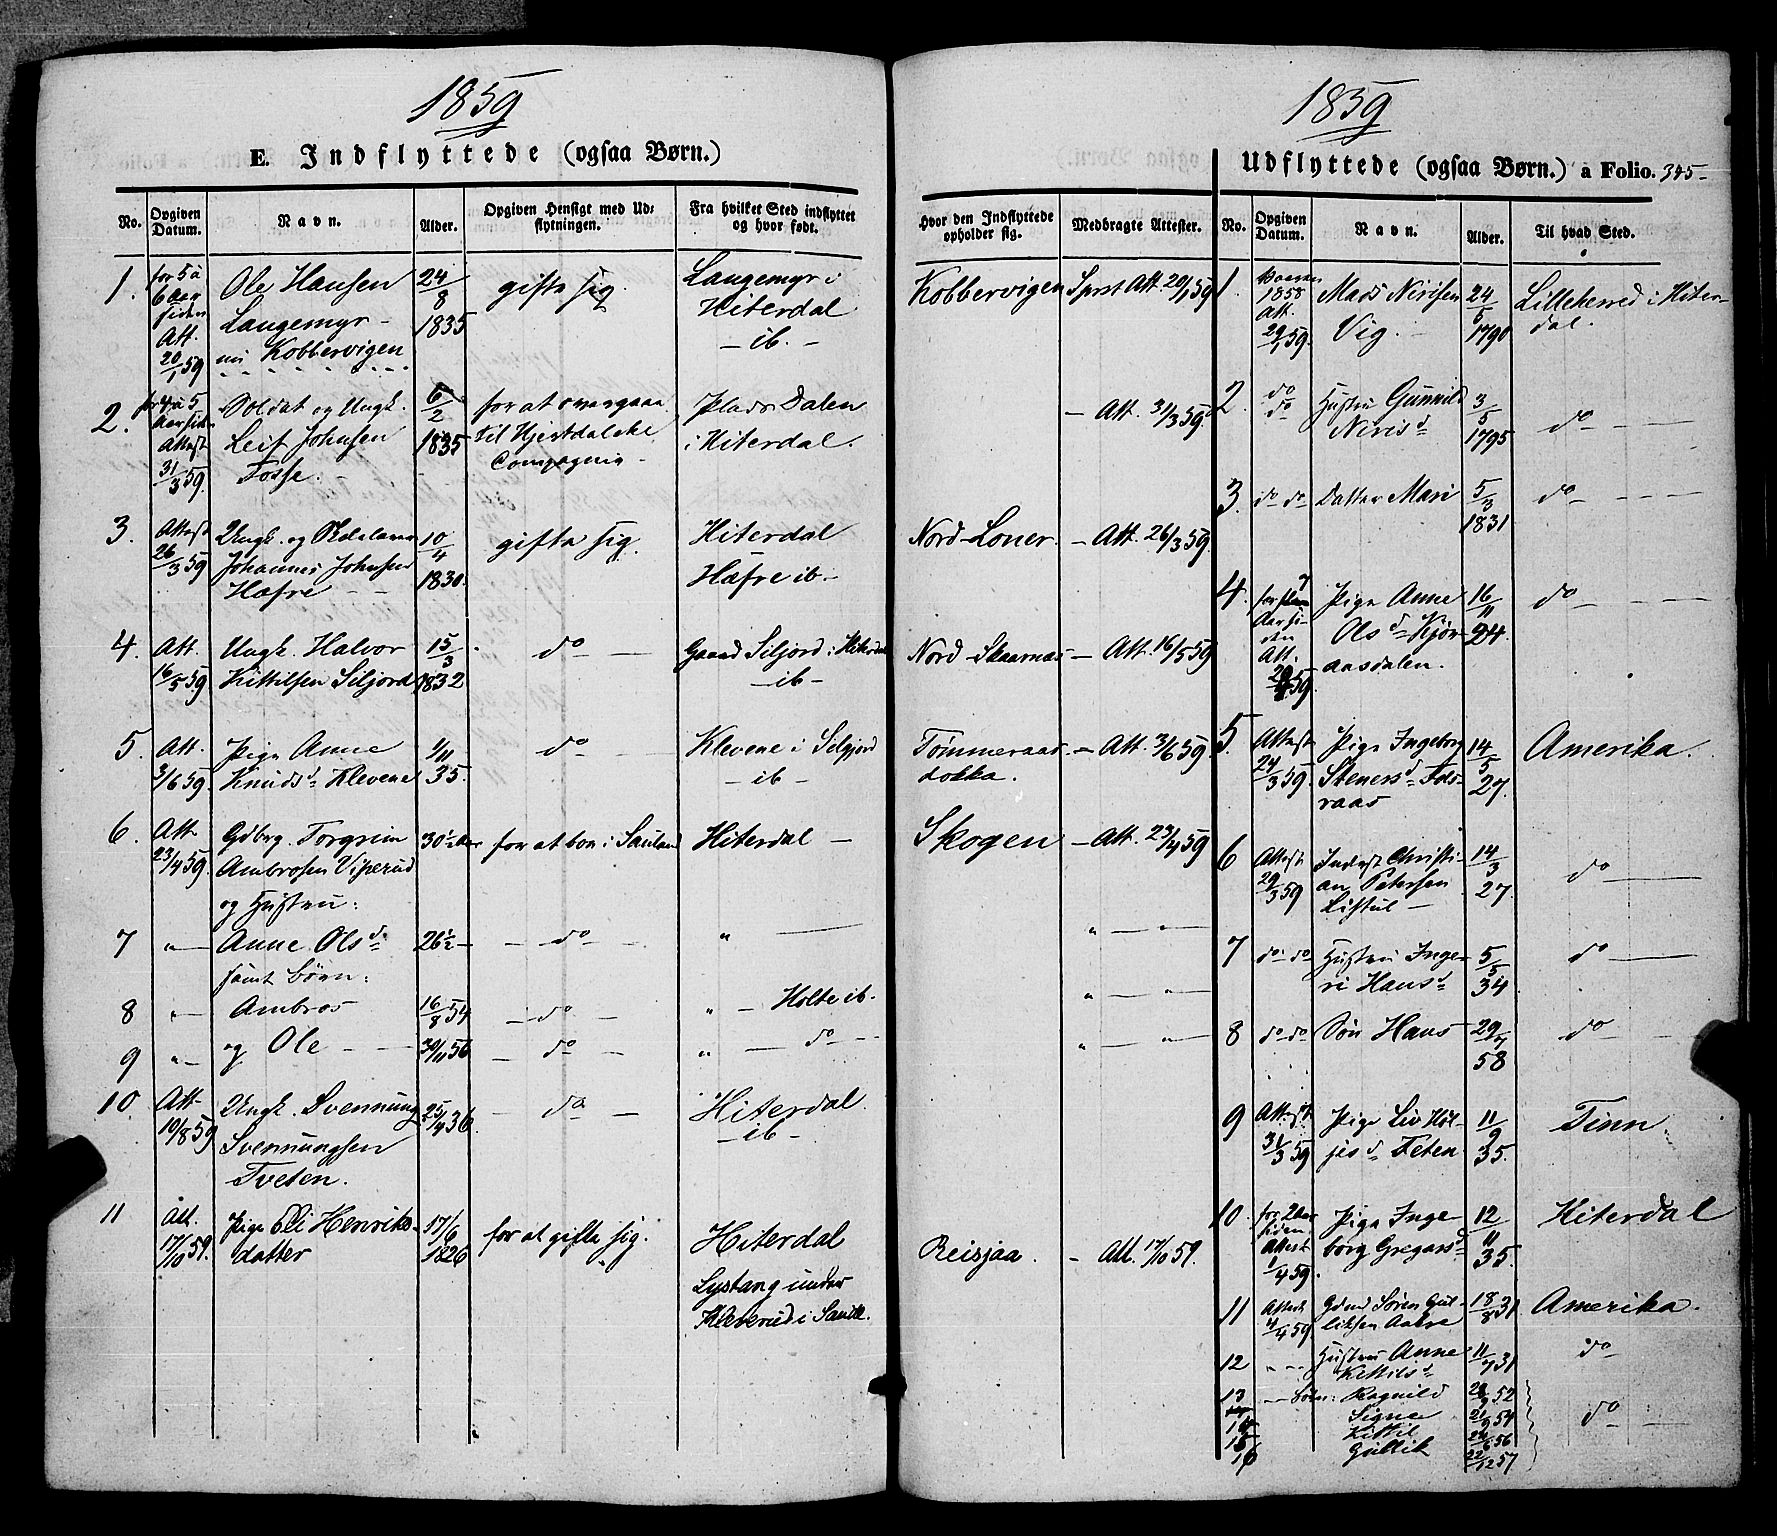 1859
E. Indflyttede (ogsaa Børn.)
No.
Opgiven Datum.
Navn.
Alder.
Opgiven Hensigt med Udflytningen.
Fra hvilket Sted indflyttet og hvor født.
Hvor den Indflyttede opholder sig.
Medbragte Attester.
1. for 5 à 6 Aar siden Att. 20/1 59 Ole Hansen Langemyr nu Kobbervigen 24/8 1835 gifte sig. Langemyr i Hiterdal ib. Kobbervigen Sprst Att 20/1 59
2. for 4 à 5 Aar siden Attest 31/3 59. Soldat og Ungk. Leif Johnsen Fosse. 6/2 1835 for at overgaae til Hjertdalske Compagnie Plads Dalen i Hiterdal. Att. 31/3 59.
3. Attest 26/3 59 Ungk. og Johannes Johnsen Hafre 10/4 1830. gifte sig. Hiterdal Hafre ib. Nord-Loner. Att. 26/3 59.
4. Att. 16/5 59 Ungk. Halvor Kittilsen Siljord 15/3 1832 do Gaard Siljord i Hiterdal ib Nord-Skaarnas Att. 16/5 59
5. Att. 3/6 59 Pige Anne Knudsd Klevene 35. do Klevene i Silgjord ib Tommeraasdokka. Att. 3/6 59
6. Att 23/4 59. Gdbrg. Torgrim Ambrosen Viperud og Hustru: 30 1/2 Aar for at boe i Sauland Hiterdal Skogen Att. 23/4 59
7 " Anne Olsd samt Børn: 26 1/2 do " " "
8 " Ambros 16/8 54 do " Holte ib. " "
9 " og Ole 30/11 56 do " do " "
10 Att 19/8 59 Ungk. Svennung Svennungsen Tveten. 25/4 36 do Hiterdal. ib
11 Att. 17/10 59. Pige Eli Henriksdatter 17/6 1826 for at gifte sig. Hiterdal Lystang under Kleverud i Saude. Reisjaa. Att. 17/10 59.
1859
Udflyttede (ogsaa Børn.) a Folio. 345
No.
Opgiven Datum.
Navn.
Alder.
Til hvad Sted.
1. Vaaren 1858 Att. 29/1 59. Mads Nirisen Vig. 24/5 1790 Lilleherred i Hiterdal.
2. do do Hustru Gunnild Nirisd 3/5 1795 do
3. do do Datter Mari 5/3 1831 do
4. for 7 Aar siden Att. 59. Pige Anne Olsd Kjøraasdalen. 16/11 24. do
5. Attest 24/3 59. Pige Ingeborg Stenersd 14/5 27. Amerika.
6 Attest 29/3 59 Inderst Christian Petersen Listul 14/3 27. do
7 do do Hustru Ingeri Hansd 5/5 34 do
8 do do Søn Hans 29/7 58 do
9 Attest 31/3 59 Pige Liv Høljesd Teten 11/9 35. Tinn
10. for 2 Aar siden Attest 1/4 59. Pige Ingeborg Gregarsd 12/11 35. Hiterdal
11 Attest 4/4 59 Gdmd Søren Gulliksen Aakre 18/8 31 Amerika.
12 Hustru Anne Kittilsd 11/7 31 do
13 Børn: Ragnild 52
Signe 54 do
15 Kittil 56
16 Gullik 22/12 57